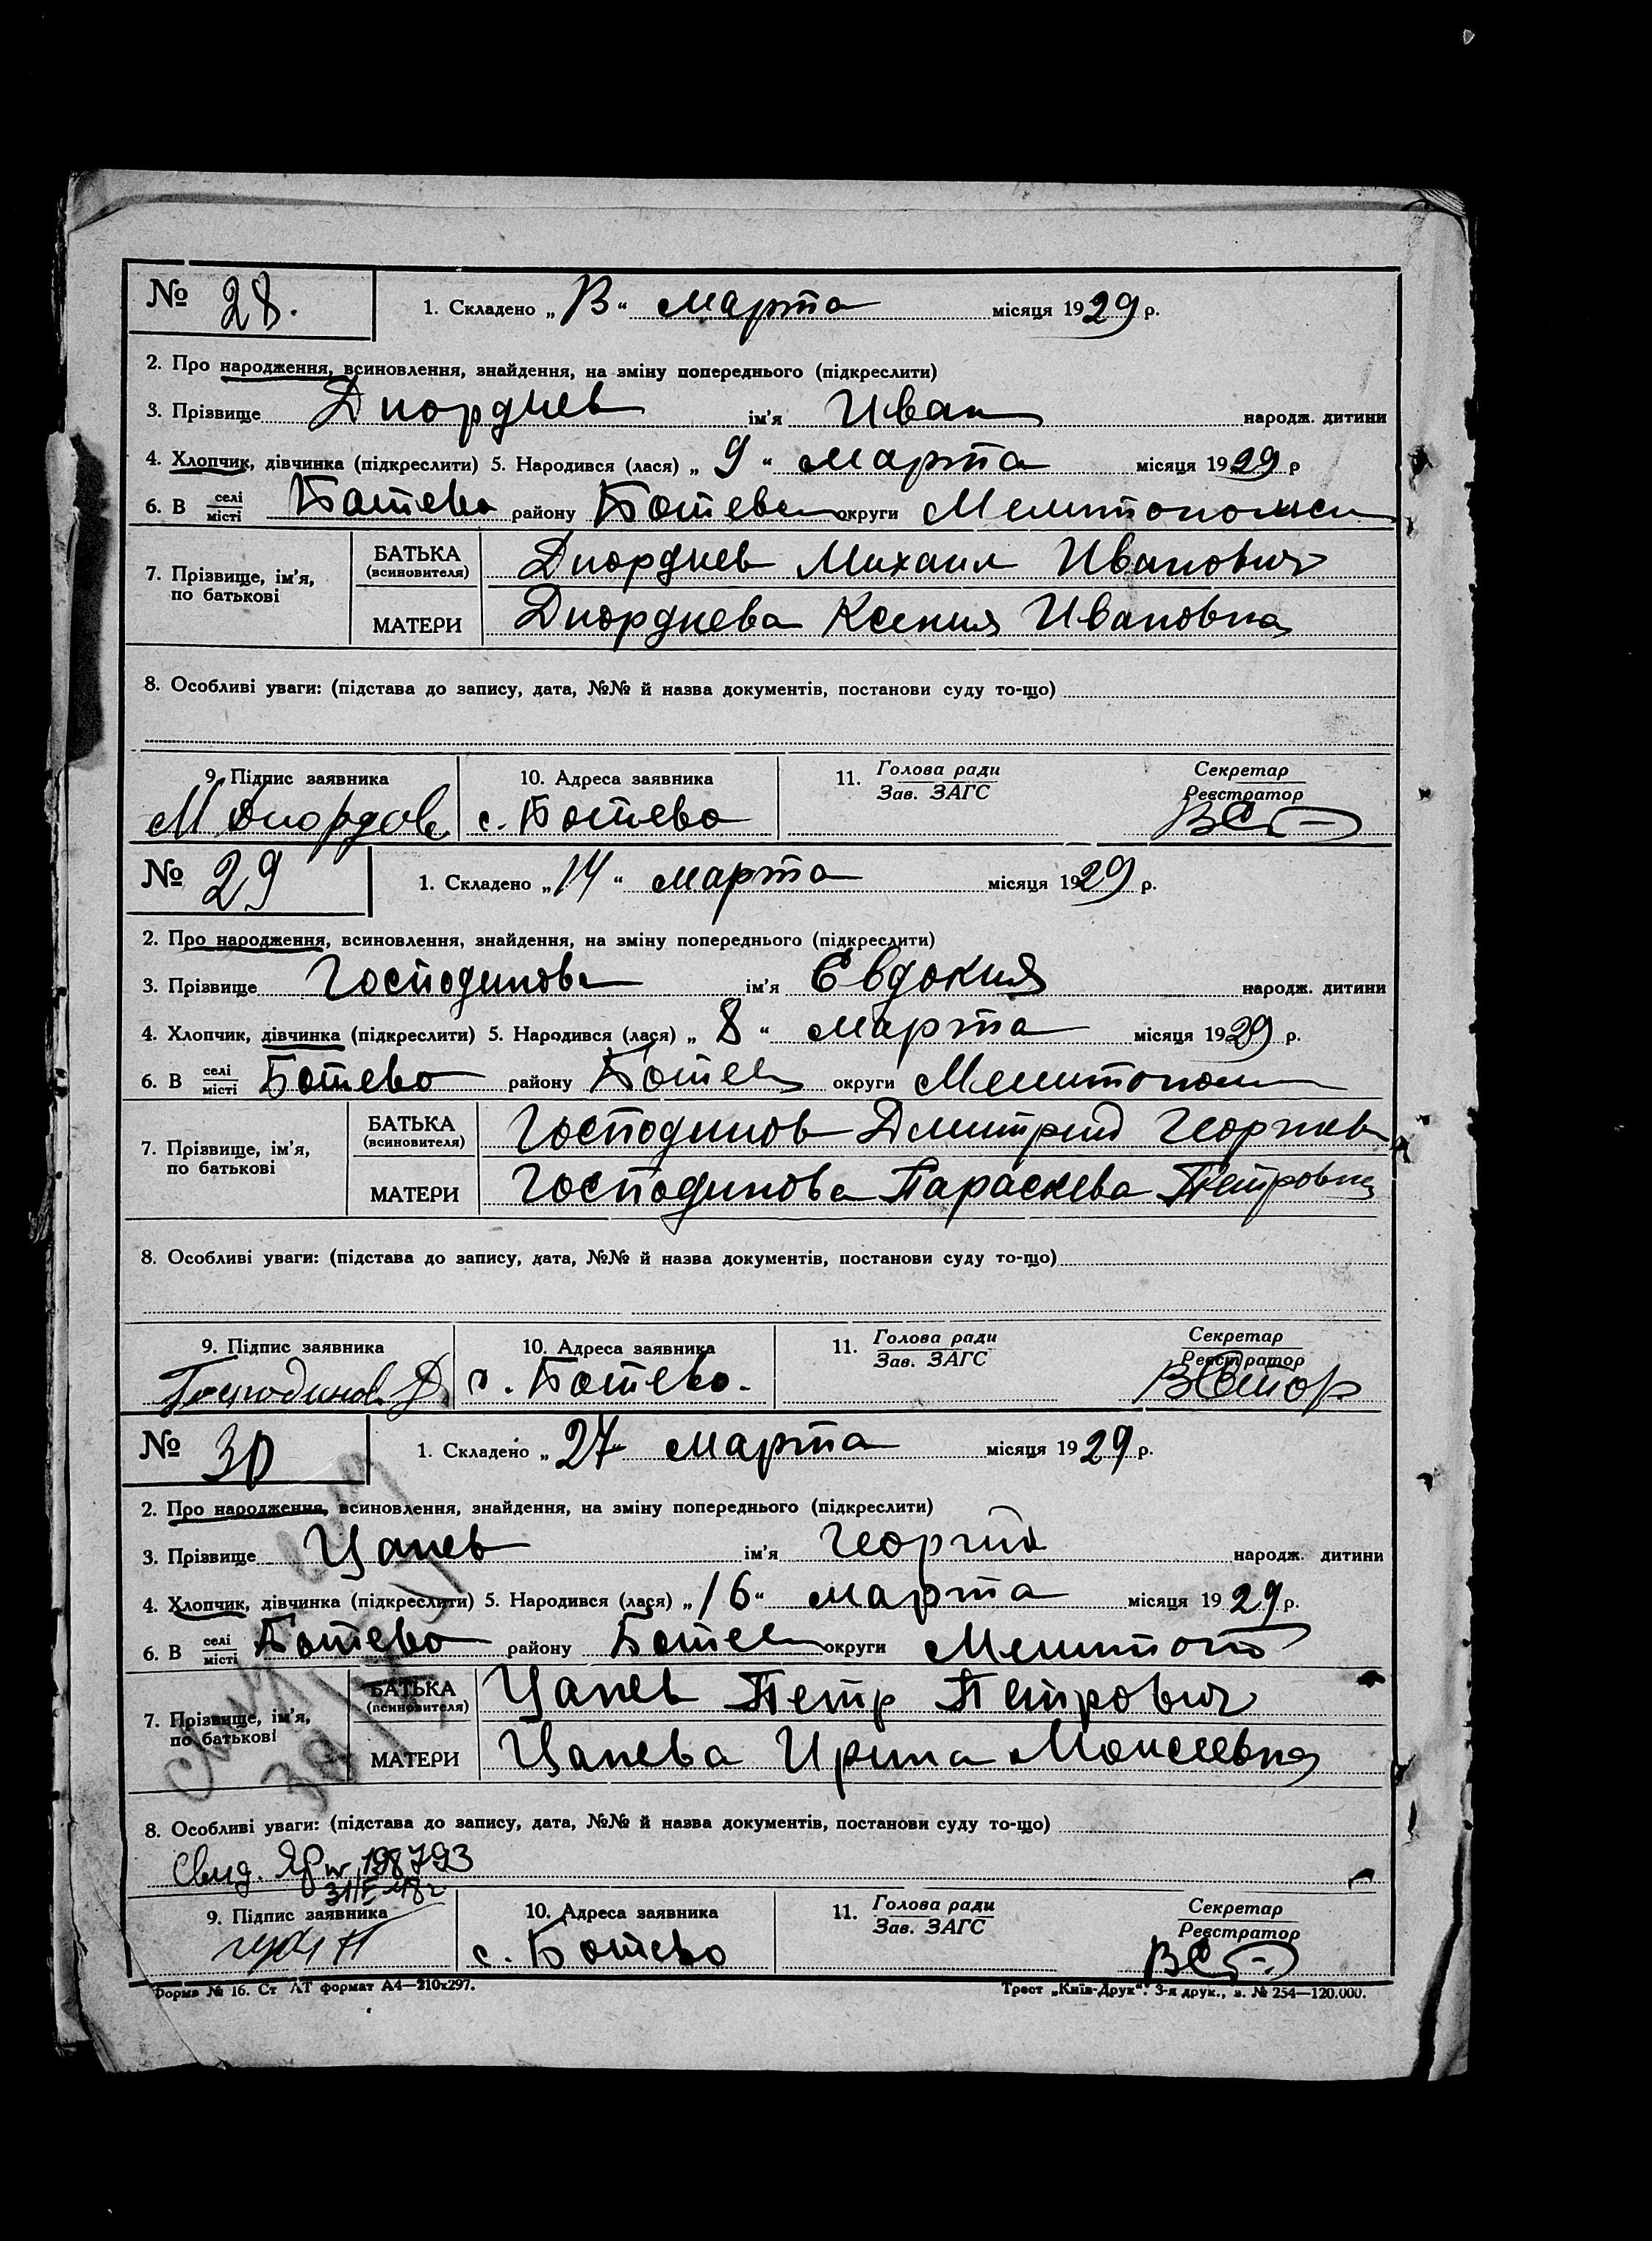 № 28. 1. Складено „13“ марта місяця 1929 р.
2. Про народження, всиновлення, знайдення, на зміну попереднього (підкреслити)
3. Прізвище Диордиев ім'я Иван народж. дитини
4. Хлопчик, дівчинка (підкреслити) 5. Народився (лася) „9“ марта місяця 1929 р
6. В селі/місті Ботево району Ботевск округи Мелитопольск
7. Прізвище, ім'я, по батькові БАТЬКА (всиновителя) Диордиев Михаил Иванович
МАТЕРИ Диордиева Ксения Ивановна
8. Особливі уваги: (підстава до запису, дата, №№ й назва документів, постанови суду то-що)
9. Підпис заявника 10. Адреса заявника 11. Голова ради Зав. ЗАГС Секретар Реєстратор
с. Ботево
№ 29 1. Складено „14“ марта місяця 1929 р.
2. Про народження, всиновлення, знайдення, на зміну попереднього (підкреслити)
3. Прізвище Господинова ім'я Евдокия народж. дитини
4. Хлопчик, дівчинка (підкреслити) 5. Народився (лася) „8“ марта місяця 1929 р.
6. В селі/місті Ботево району Ботев округи Мелитопол
7. Прізвище, ім'я, по батькові БАТЬКА (всиновителя) Господинов Дмитрий Георгиев
МАТЕРИ Господинова Параскева Петровна
8. Особливі уваги: (підстава до запису, дата, №№ й назва документів, постанови суду то-що)
9. Підпис заявника 10. Адреса заявника 11. Голова ради Зав. ЗАГС Секретар Реєстратор
Господинов Д с. Ботево.
№ 30 1. Складено „27“ марта місяця 1929 р.
2. Про народження, всиновлення, знайдення, на зміну попереднього (підкреслити)
3. Прізвище Цанев ім'я Георгий народж. дитини
4. Хлопчик, дівчинка (підкреслити) 5. Народився (лася) „16“ марта місяця 1929 р.
6. В селі/місті Ботево району Ботев округи Мелитоп
7. Прізвище, ім'я, по батькові БАТЬКА (всиновителя) Цанев Петр Петрович
МАТЕРИ Цанева Ирина Моисеевна
8. Особливі уваги: (підстава до запису, дата, №№ й назва документів, постанови суду то-що)
Свид. № 198793
9. Підпис заявника 10. Адреса заявника 11. Голова ради Зав. ЗАГС Секретар Реєстратор
с. Ботево
Форма № 16. Ст АТ формат А4—210х297. Трест „Київ-Друк“. 3-я друк., з. № 254—120.000.